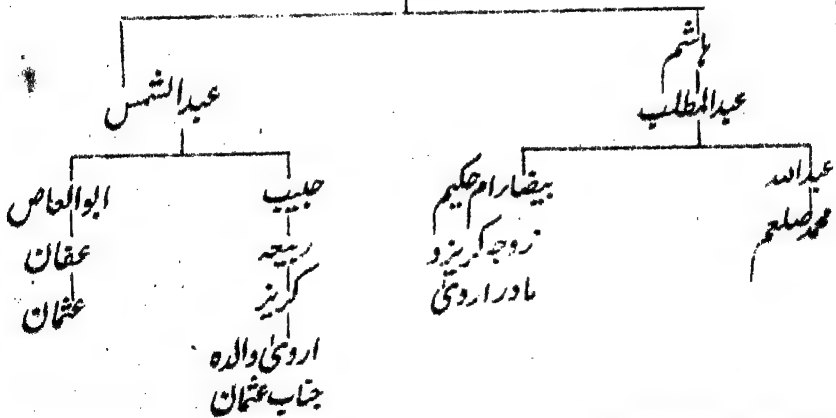 ہاشم
عبدالمطلب
عبدالشمس
عبداللہ
محمد صلعم
بیضار ام حکیم
زوجہ کریز و
مادر اردیٰ
حبیب
ربیعہ
کریز
اردیٰ والدہ
جناب عثمان
ابوالعاص
عفان
عثمان